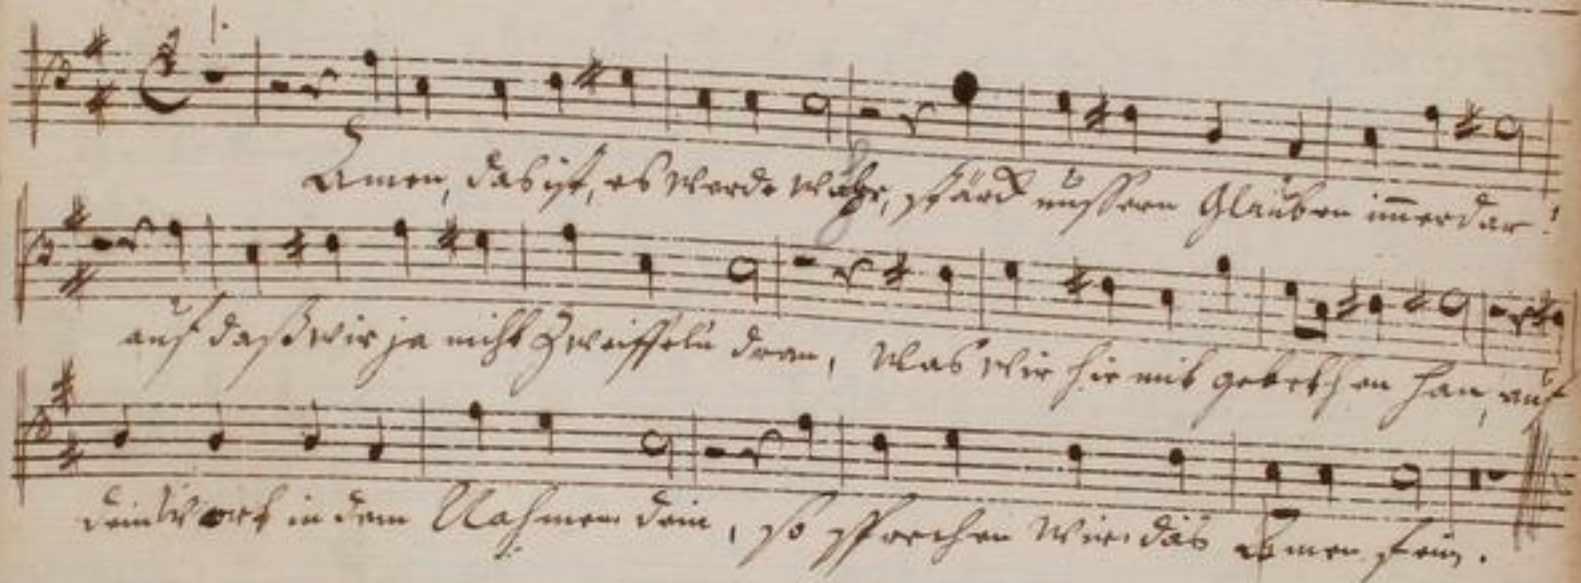 Amen, das ist, es werde wahr, stärck unssern Glauben im̄erdar!
auf daß wir ja nicht Zweiffeln dran, Was wir hie mit gebethen han, auf
dein Wort in dem Nahmen dein, so sprechen Wir das Amen fein.